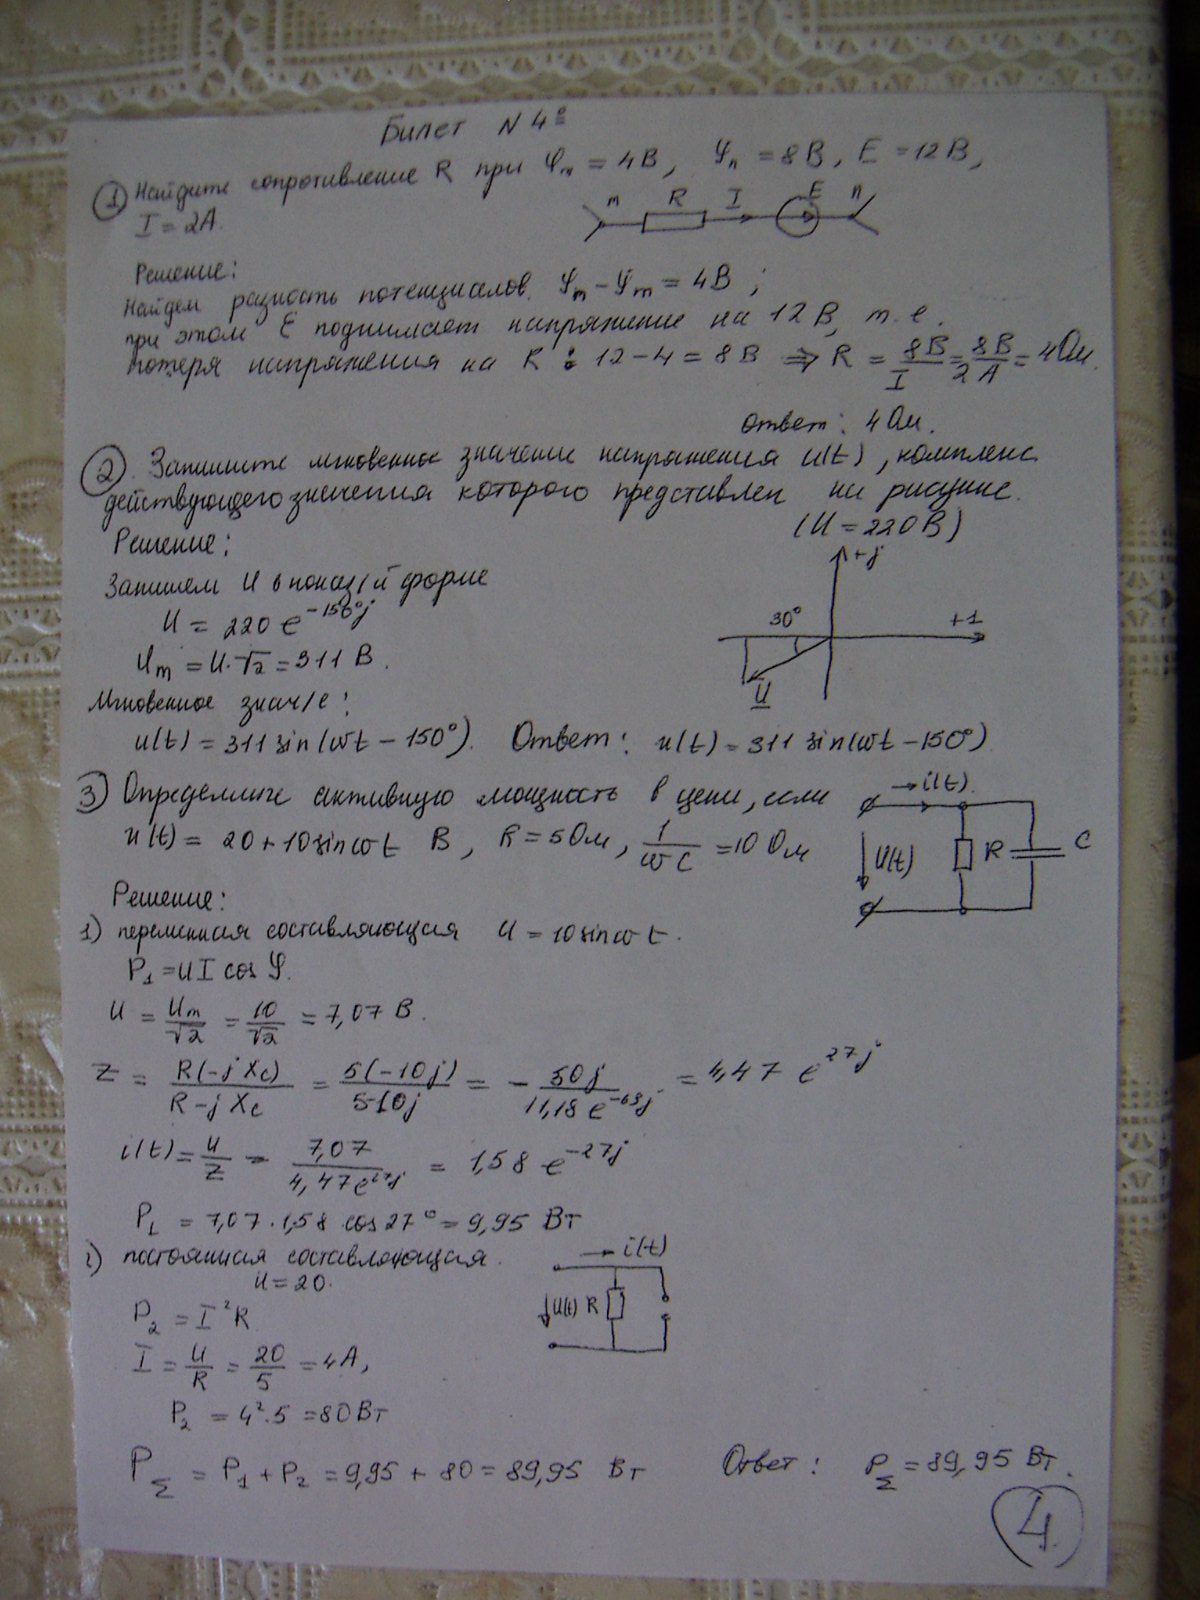 Билет N 4º
① Найдите сопротивление R при φm = 4В, φn = 8В, E = 12В,
I = 2А.
m R I E n
Решение:
Найдем разность потенциалов. φn − φm = 4В ;
при этом E поднимает напряжение на 12 В, т. е.
потеря напряжения на R : 12 − 4 = 8В ⇒ R = 8В/I = 8В/2А = 4Ом.
Ответ: 4 Ом.
② Запишите мгновенное значение напряжения u(t), комплекс
действующего значения которого представлен на рисунке.
(U = 220В)
Решение:
+j
Запишем U в показ/й форме
30° +1
U = 220 e^−150°j
Um = U·√2 = 311 В.
U
Мгновенное знач/е:
u(t) = 311 sin(ωt − 150°). Ответ: u(t) = 311 sin(ωt − 150°)
③ Определите активную мощность в цепи, если
→ i(t)
u(t) = 20 + 10 sin ωt В, R = 5 Ом, 1/ωC = 10 Ом
U(t) R C
Решение:
1) переменная составляющая U = 10 sin ωt.
P1 = UI cos φ.
U = Um/√2 = 10/√2 = 7,07 В.
Z = R(−j Xc)/R−j Xc = 5(−10j)/5−10j = − 50j/11,18 e^−63j = 4,47 e^27j
i(t) = U/Z = 7,07/4,47 e^27j = 1,58 e^−27j
P1 = 7,07 · 1,58 · cos 27° = 9,95 Вт
2) постоянная составляющая.
→ i(t)
U = 20.
U(t) R
P2 = I²R
I = U/R = 20/5 = 4А,
P2 = 4²·5 = 80 Вт
PΣ = P1 + P2 = 9,95 + 80 = 89,95 Вт Ответ: PΣ = 89,95 Вт.
4